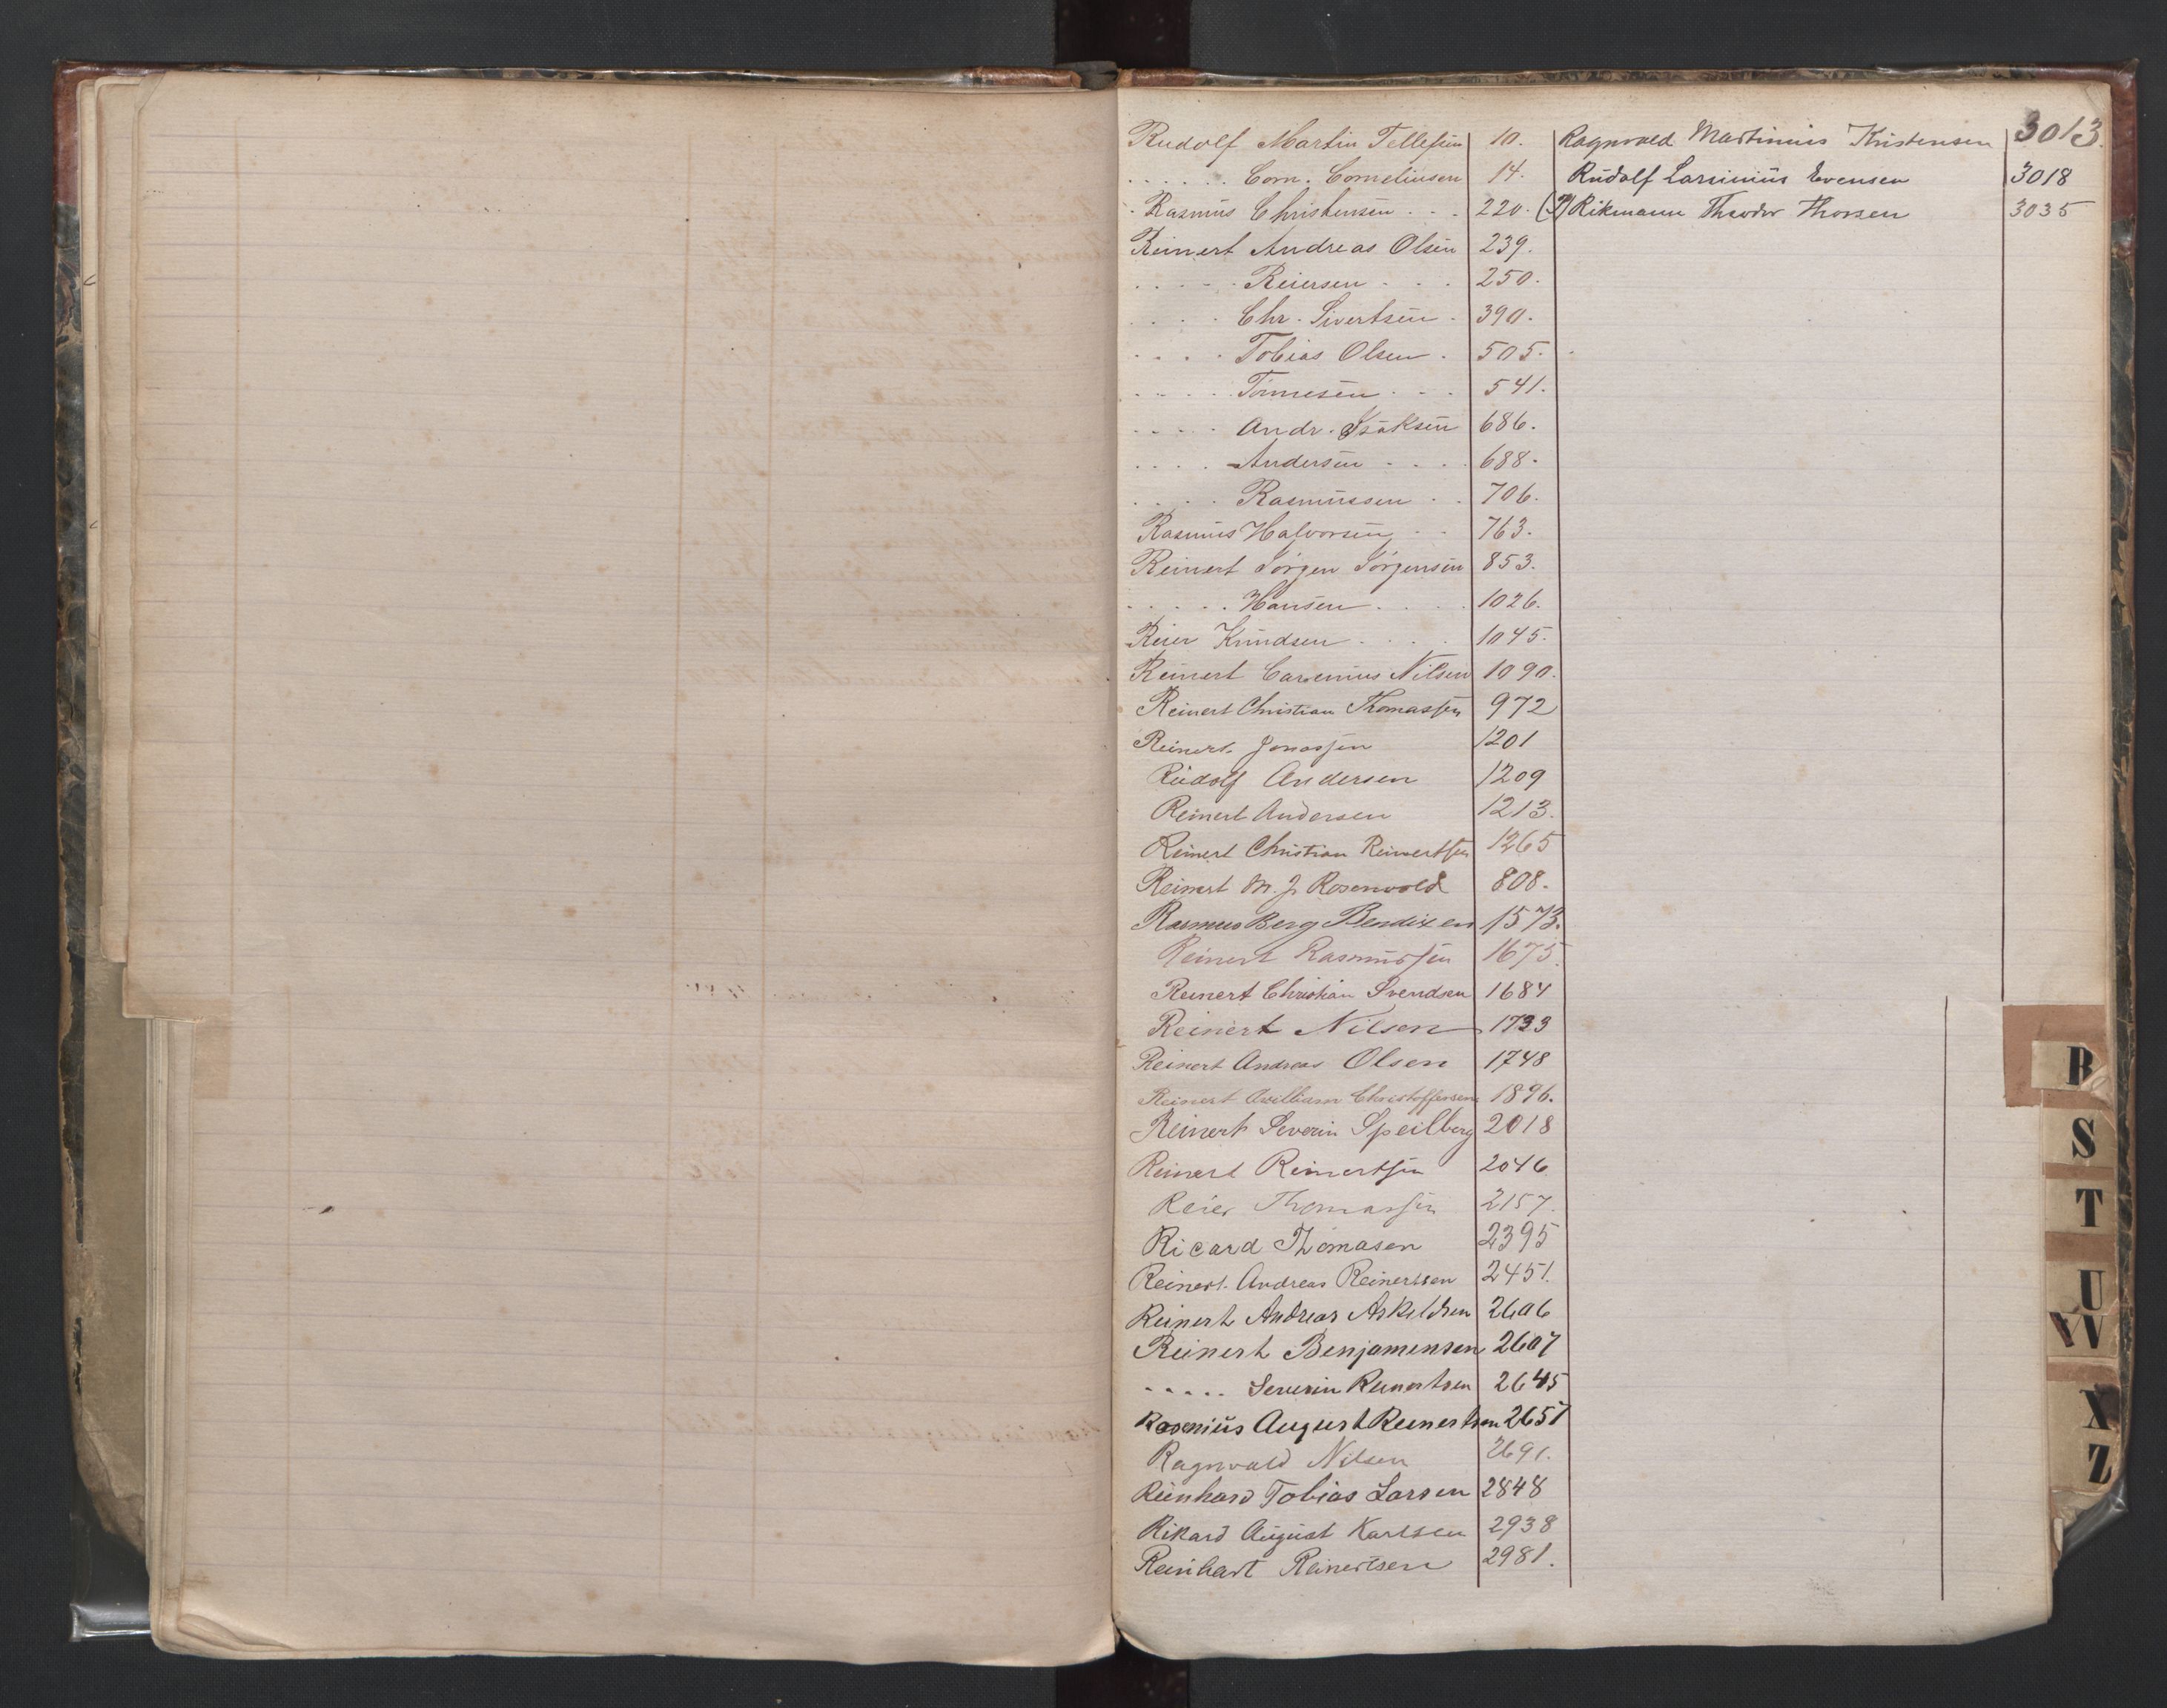 Rudolf Martin Tellefsen 10.
. . . . . . Corn. Corneliusen 14.
Rasmus Christensen . . . 220.
Reinert Andreas Olsen 239.
. . . . . Reiersen . . . 250.
. . . . Chr. Sivertsen . 390.
. . . . Tobias Olsen . 505.
. . . . . Tönnesen . . . 541.
. . . . Andr. Isaksen 686.
. . . . Andersen . . . . 688.
. . . . Rasmussen . . 706.
Rasmus Halvorsen . . 763.
Reinert Jörgen Jörgensen 853.
. . . . . Hansen . . . . 1026.
Reier Knudsen . . . . 1045.
Reinert Carenius Nilsen 1090.
Reinert Christian Thomassen 972
Reinert Jonassen 1201
Rudolf Andersen 1209
Reinert Andersen 1213.
Reinert Christian Reinertsen 1265
Reinert M. J. Rosenvold 808.
Rasmus Berg Bendixen 1573.
Reinert Rasmussen 1675.
Reinert Christian Svendsen 1684
Reinert Nilsen 1733
Reinert Andreas Olsen 1748
Reinert William Christoffersen 1896.
Reinert Severin Speilberg 2018
Reinert Reinertsen 2046
Reier Thomassen 2157.
Ricard Thomasen 2395
Reinert Andreas Reinertsen 2451.
Reinert Andreas Askeldsen 2606
Reinert Benjamensen 2607
. . . . . Severin Reinertsen 2645
Rasmus August Reinertsen 2657
Ragnvald Nilsen 2691.
Reinhard Tobias Larsen 2848
Rikard August Karlsen 2938
Reinhart Reinertsen 2981.
Ragnvald Martinius Kristensen 3013.
Rudolf Larsinius Evensen 3018
(?) Rikmann Theodor Thorsen 3035
R
S
T
U
VW
X
Z